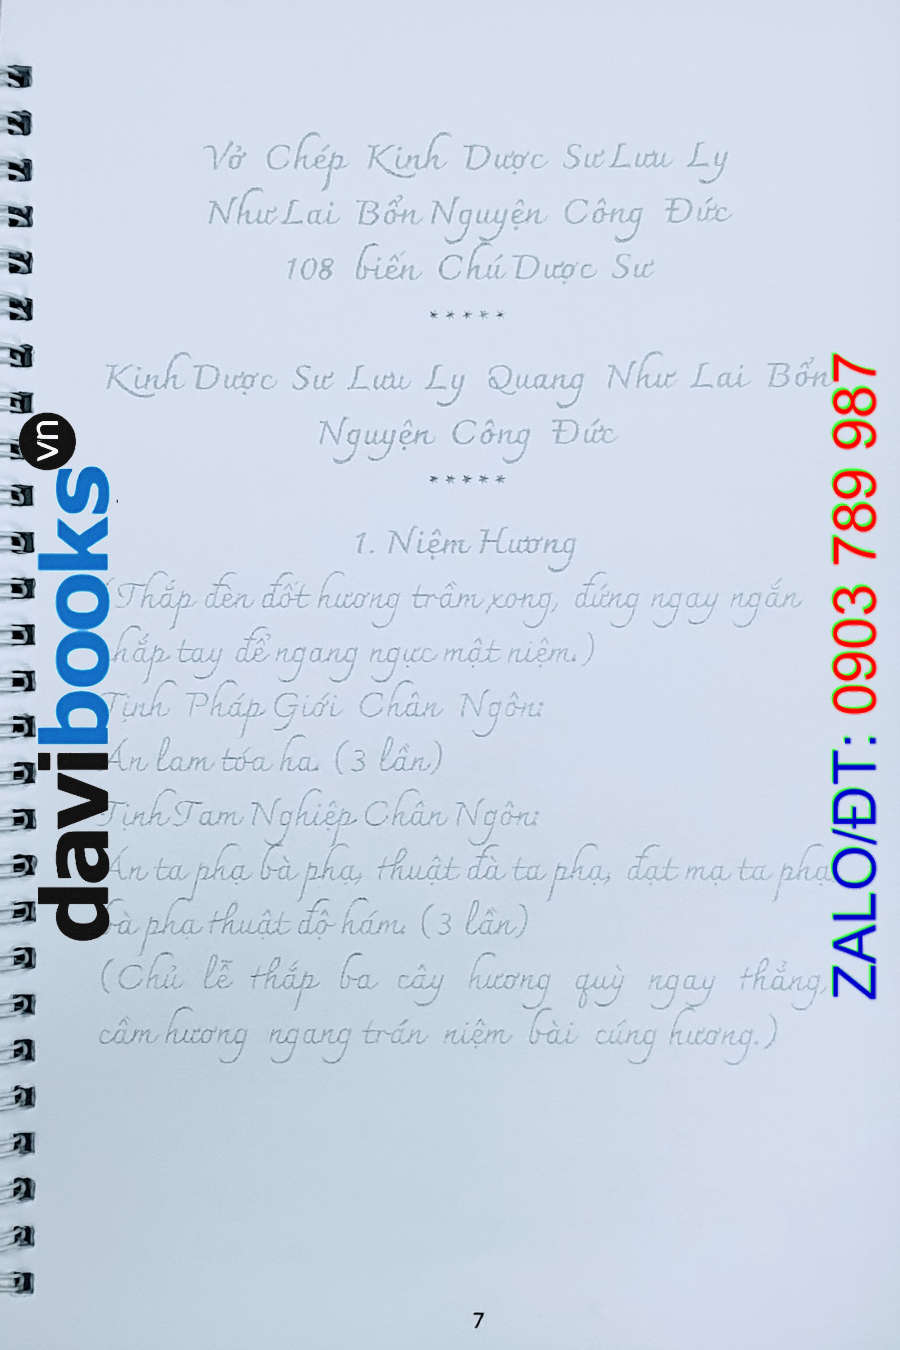 Vở Chép Kinh Dược Sư Lưu Ly
Như Lai Bổn Nguyện Công Đức
108 biến Chú Dược Sư
*****
Kinh Dược Sư Lưu Ly Quang Như Lai Bổn
Nguyện Công Đức
*****
1. Niệm Hương
(Thắp đèn đốt hương trầm xong, đứng ngay ngắn
chắp tay để ngang ngực mật niệm.)
Tịnh Pháp Giới Chân Ngôn:
Án lam tóa ha. (3 lần)
Tịnh Tam Nghiệp Chân Ngôn:
Án ta phạ bà phạ, thuật đà ta phạ, đạt mạ ta phạ
bà phạ thuật độ hám. (3 lần)
(Chủ lễ thắp ba cây hương quỳ ngay thẳng,
cầm hương ngang trán niệm bài cúng hương.)
7
davibooks vn
ZALO/ĐT: 0903 789 987